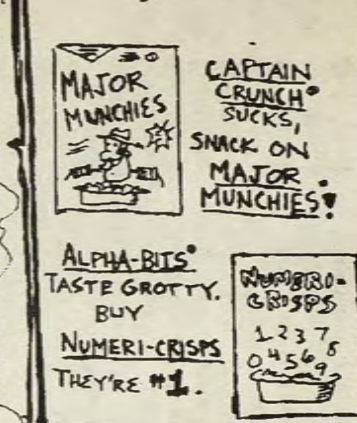 MAJOR
MUNCHIES
CAPTAIN
CRUNCH®
SUCKS,
SNACK ON
MAJOR
MUNCHIES!
ALPHA-BITS®
TASTE GROTTY.
BUY
NUMERI-CRISPS
THEY'RE #1.
NUMERI-
CRISPS
1 2 3 7
0 4 5 6 8
9